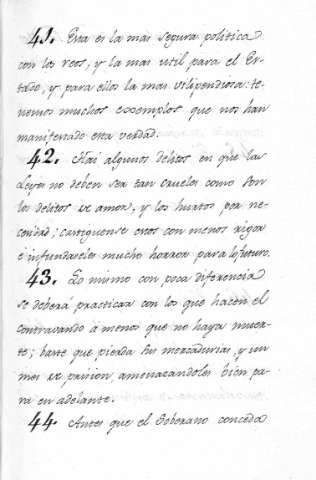 41. Esta es la mas segura politica
con los reos, y la mas util para el Es-
tado, y para ellos la mas vilipendiosa: te-
nemos muchos exemplos que nos han
manifestado esta verdad.
42. Hai algunos delitos en que las
Leyes no deben ser tan crueles como son
los delitos de amor, y los hurtos por ne-
cesidad; castiguense estos con menos rigor
è infundaseles mucho horror para lo futuro.
43. Lo mismo con poca diferencia
se deberá practicar con los que hacen el
contravando à menos que no haya muer-
te; baste que pierda sus mercadurias, y un
mes de prision, amenazandoles bien pa-
ra en adelante.
44. Antes que el Soberano conceda